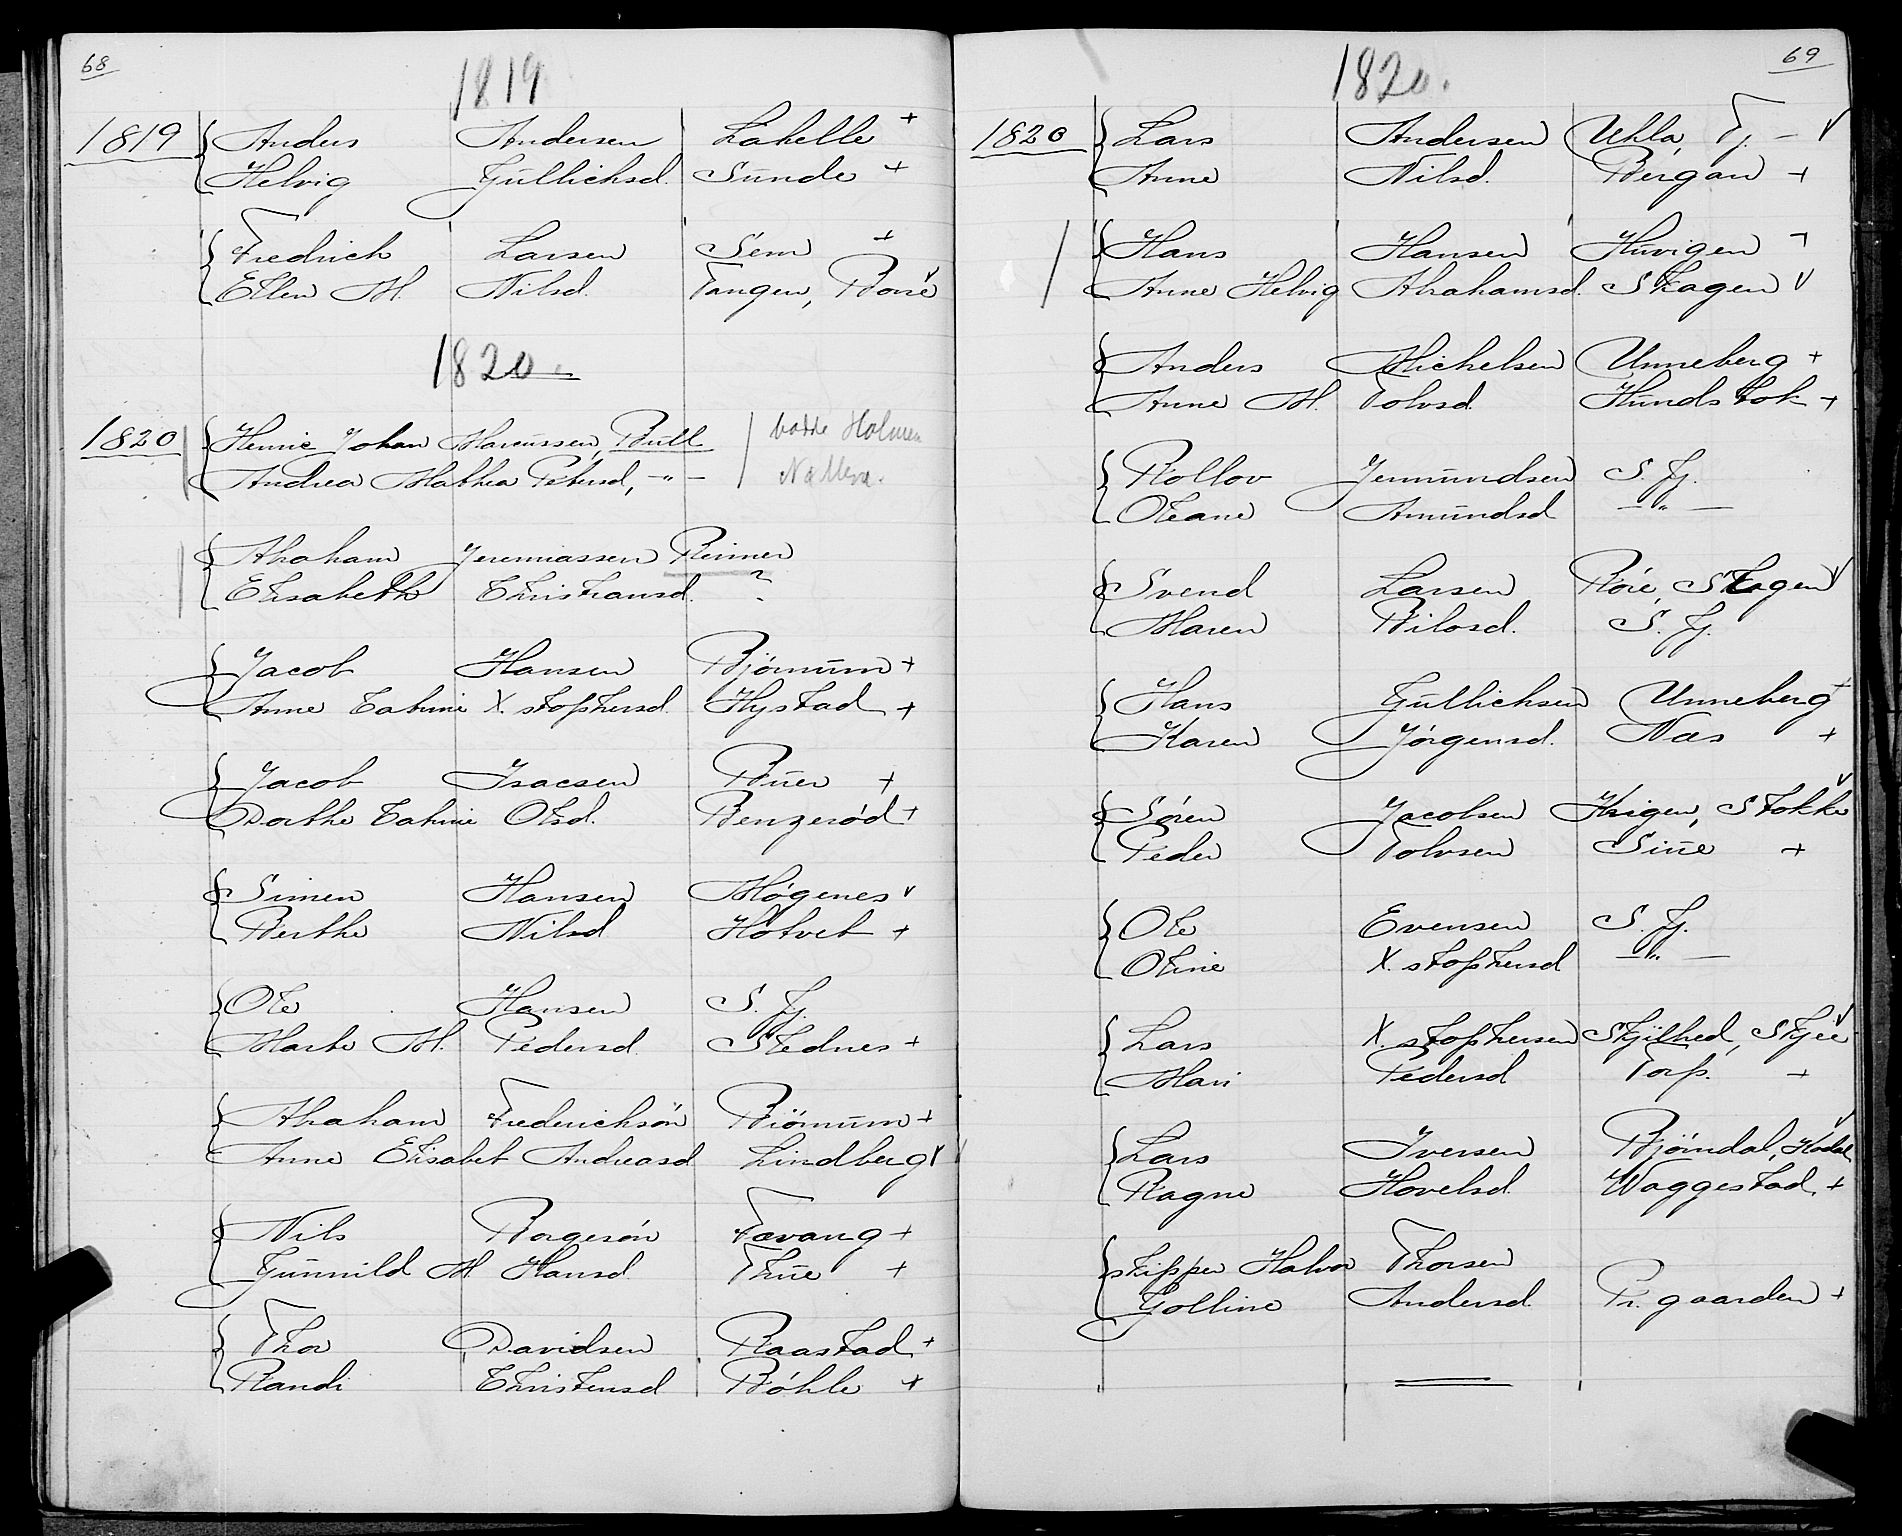 68
1819
1819 Anders Andersen Lahelle +
Helvig Gullichsd. Sunde +
Fredrich Larsen Sem +
Ellen M. Nilsd. Tangen, Borre v
1820.
1820 Henric Johan Marcussen, Bull
Andrea Mathea Petersd, -"- Holmen
Abraham Jeremiassen Rimer
Elisabeth Christiansd. ?
Jacob Hansen Bjørnum +
Anne Catrine X.stophersd. Hystad +
Jacob Isacsen Buer +
Dorthe Catrine Olsd. Benzerød +
Simen Hansen Møgenes v
Berthe Nilsd Hotvet +
Ole Hansen S. Fj.
Marte M. Pedersd. Stednes +
Abraham Frederichsøn Biørnum +
Anne Elisabet Andreasd Lindberg v
Nils Borgersøn Fævang +
Gunnild M Hansd. Thue +
Thor Davidsen Raastad +
Randi Christensd Bøhle +
69
1820.
1820 Lars Andersen Uhla, Tj. - v
Anne Nilsd. Bergan +
Hans Hansen Huvigen +
Anne Helvig Abrahamsd. Skagen v
Anders Michelsen Unneberg +
Anne M. Tolvsd. Hundstok +
Rollov Jermundsen S. Fj.
Oleane Amundsd -"-
Svend Larsen Røre, Skagen v
Maren Nilsd. S. Fj.
Hans Gullichsen Unneberg +
Karen Jørgensd. Næs +
Søren Jacobsen Krigen, Stokke v
Peder Tolvsen Sine +
Ole Evensen S. Fj.
Oline X.stophersd -"-
Lars X.stophersen Skjelhed, Skjee v
Mari Pedersd Torp. +
Lars Iversen Bjørndal, Kodal v
Ragne Hovelsd. Waggestad, +
Skipper Halvor Thorsen
Golline Andersd. Pr. gaarden +